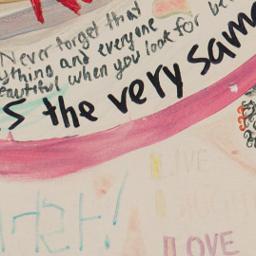 Never forget that
ything and everyone
eautiful when you look for be
s the very same
LIVE
LAUGH
LOVE